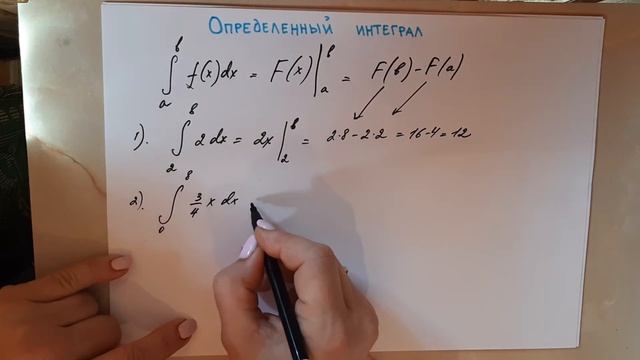 Определенный интеграл
∫ₐᵇ f(x)dx = F(x)|ₐᵇ = F(b) - F(a)
1). ∫₂⁸ 2 dx = 2x|₂⁸ = 2·8 - 2·2 = 16 - 4 = 12
2). ∫₀⁸ 3/4 x dx